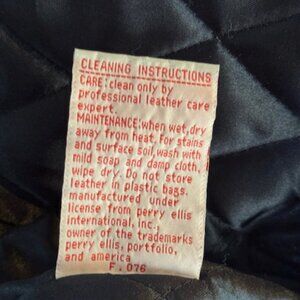 CLEANING INSTRUCTIONS
CARE: clean only by
professional leather care
expert.
MAINTENANCE: when wet, dry
away from heat. For stains
and surface soil, wash with
mild soap and damp cloth,
wipe dry. Do not store
leather in plastic bags.
manufactured under
license from perry ellis
international, inc.,
owner of the trademarks
perry ellis, portfolio,
and america
F. 076